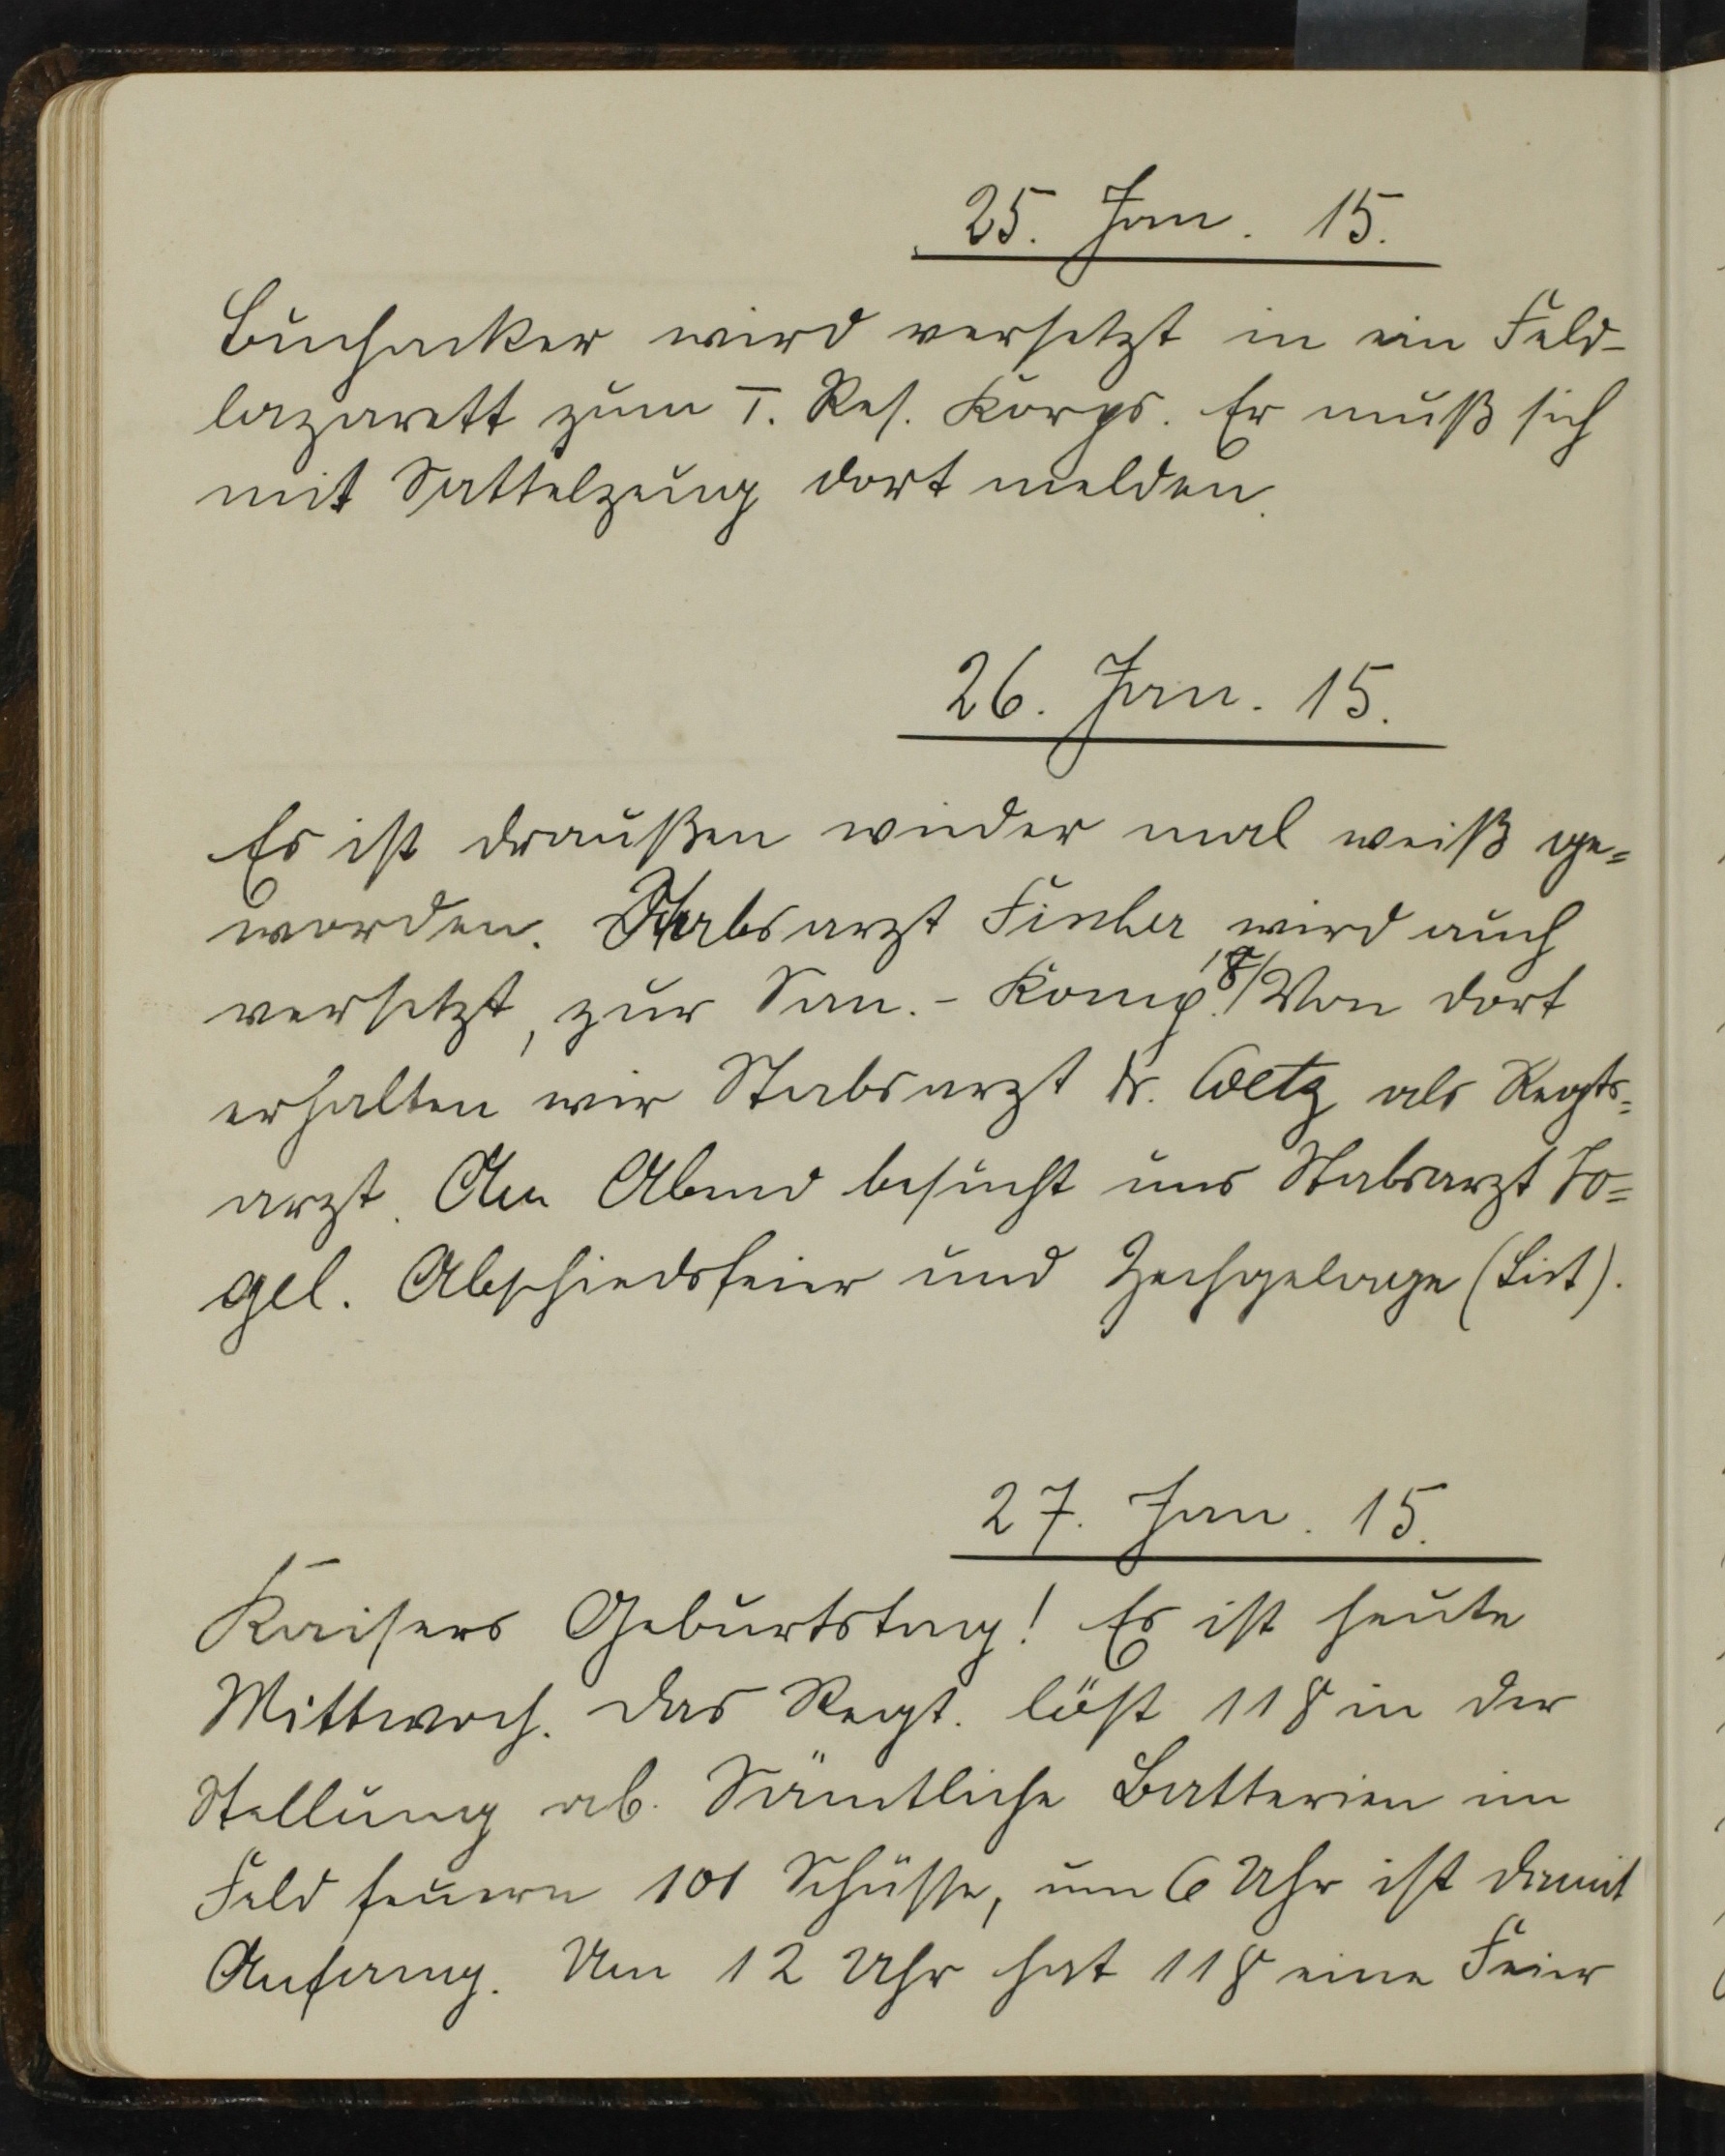 25. Jan. 15.
Buchacker wird versetzt in ein Feld-
lazarett zum I. Res. Korps. Er muß sich
mit Sattelzeug dort melden.
26. Jan. 15.
Es ist draußen wieder mal weiß ge=
worden. Stabsarzt wird auch
versetzt, zur San.-Komp. Von dort
erhalten wir Stabsarzt Dr. Coetz als Regts=
arzt. Am Abend besucht uns Stabsarzt Fo=
gel. Abschiedsfeier und Zechgelage (List).
27. Jan. 15.
Kaisers Geburtstag! Es ist heute
Mittwoch. Das Regt. löst 118 in der
Stellung ab. Sämtliche Batterien im
Feld feuern 101 Schüsse, um 6 Uhr ist damit
Anfang. Um 12 Uhr hat 118 eine Feier